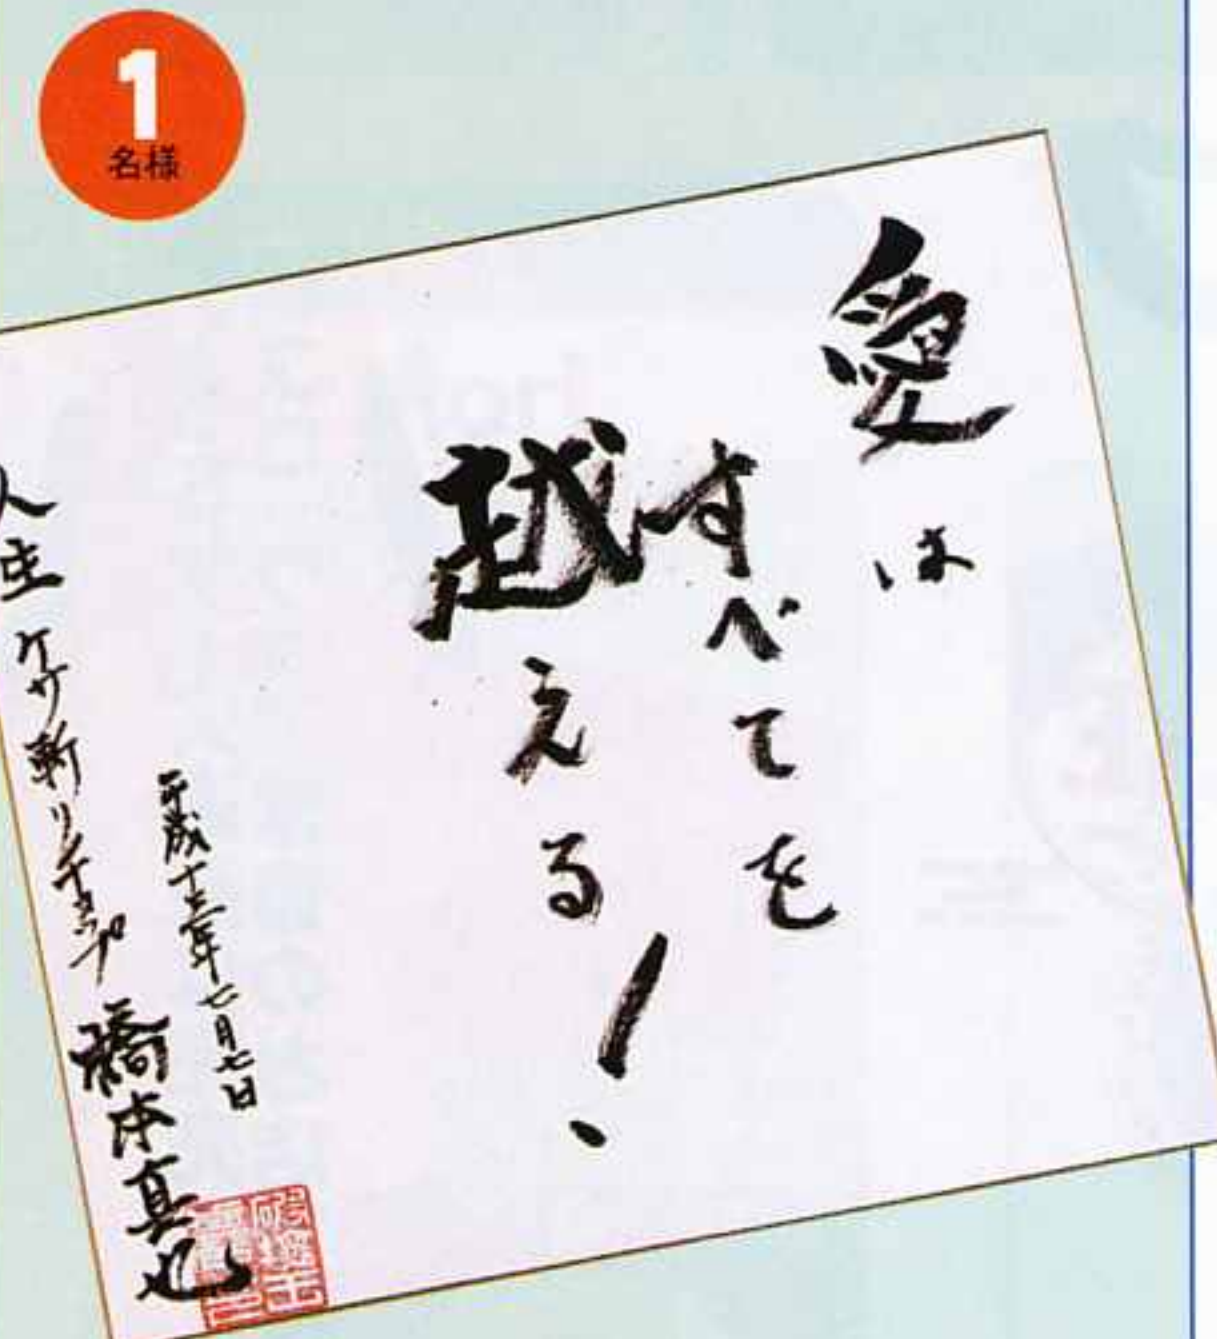 1
名様
愛は
すべてを
越える!
平成十三年七月七日
人生ケサ斬りチョップ
橋本真也